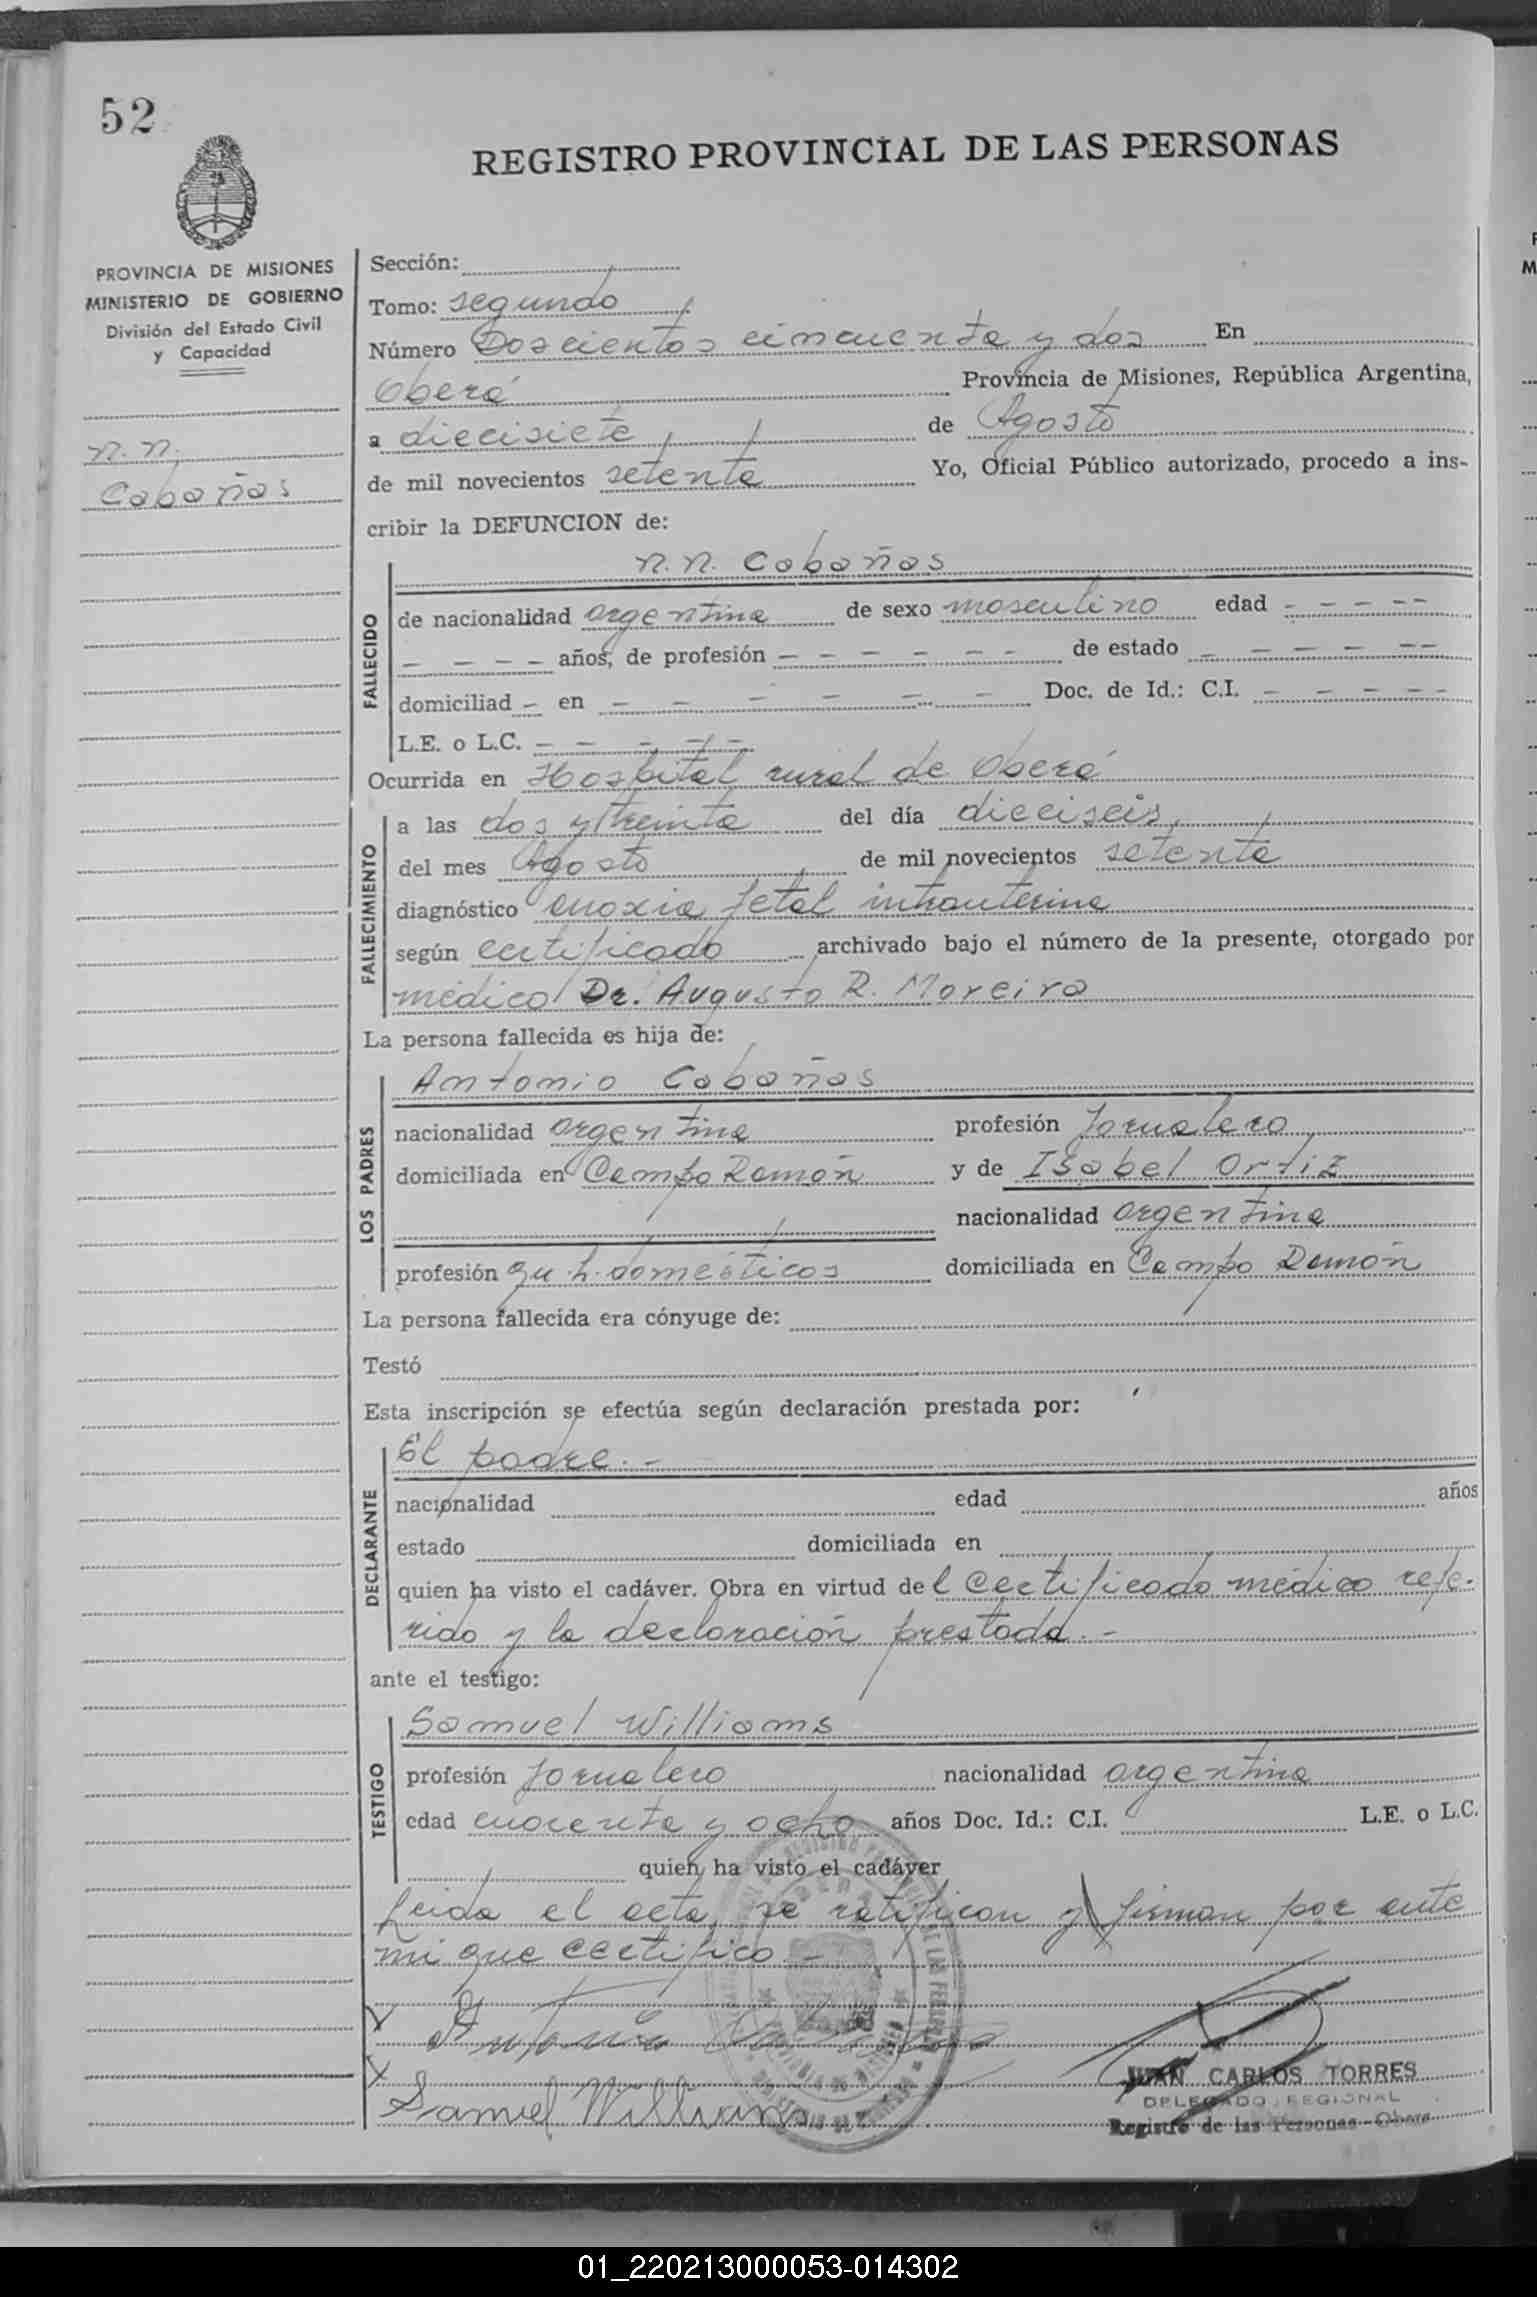 52
REGISTRO PROVINCIAL DE LAS PERSONAS
PROVINCIA DE MISIONES
MINISTERIO DE GOBIERNO
División del Estado Civil
y Capacidad
n.n.
Cabañas
Sección:
Tomo: segundo
Número Doscientos cincuenta y dos En
Oberá Provincia de Misiones, República Argentina,
a diecisiete de Agosto
de mil novecientos setenta Yo, Oficial Público autorizado, procedo a ins-
cribir la DEFUNCION de:
n.n. Cabañas
FALLECIDO
de nacionalidad argentina de sexo masculino edad - - - - -
- - - - años, de profesión - - - - - - de estado - - - - - -
domiciliad - en - - - - - - Doc. de Id.: C.I. - - - - -
L.E. o L.C. - - - - -
Ocurrida en Hospital rural de Oberá
FALLECIMIENTO
a las dos y treinta del día dieciseis
del mes Agosto de mil novecientos setenta
diagnóstico anoxia fetal intrauterina
según certificado archivado bajo el número de la presente, otorgado por
médico Dr. Augusto R. Moreira
La persona fallecida es hija de:
LOS PADRES
Antonio Cabañas
nacionalidad argentina profesión Jornalero
domiciliada en Campo Ramón y de Isabel Ortiz
nacionalidad argentina
profesión qu.h.domésticos domiciliada en Campo Ramón
La persona fallecida era cónyuge de:
Testó
Esta inscripción se efectúa según declaración prestada por:
DECLARANTE
El padre.-
nacionalidad edad años
estado domiciliada en
quien ha visto el cadáver. Obra en virtud del certificado médico refe-
rido y la declaración prestada.-
ante el testigo:
TESTIGO
Samuel Williams
profesión Jornalero nacionalidad argentina
edad cuarenta y ocho años Doc. Id.: C.I. L.E. o L.C.
quien ha visto el cadáver
Leida el acta, se ratifican y firman por ante
mi que certifico.-
X Antonio
X Samuel Williams
JUAN CARLOS TORRES
DELEGADO REGIONAL
Registro de las Personas - Oberá
01_220213000053-014302